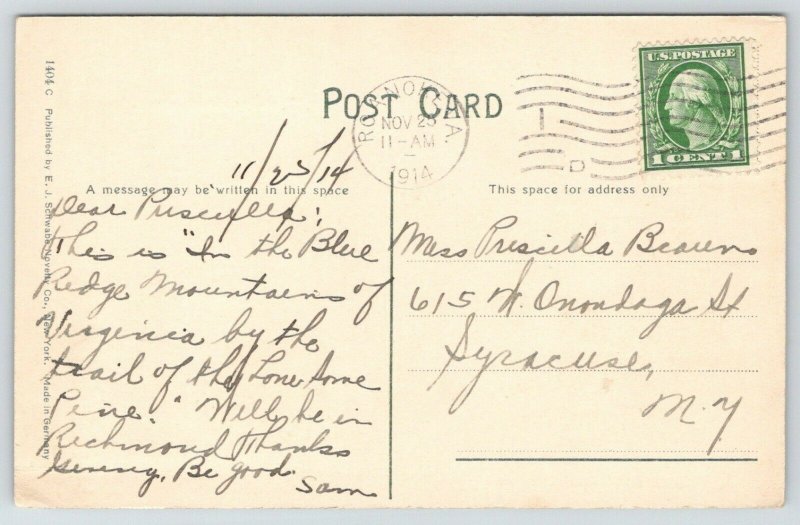 POST CARD
ROANOKE, VA.
NOV 23
11-AM
1914
D
U.S.POSTAGE
1 CENT 1
1404 C Published by E. J. Schwabe Novelty Co., New York. Made in Germany
A message may be written in this space
This space for address only
11/23/14
Dear Priscilla:
This is "In the Blue
Ridge Mountains of
Virginia by the
trail of the Lonesome
Pine." Will be in
Richmond Thanks
giving. Be good.
Sam
Miss Priscilla Beauns
615 W. Onondaga St
Syracuse,
N.Y